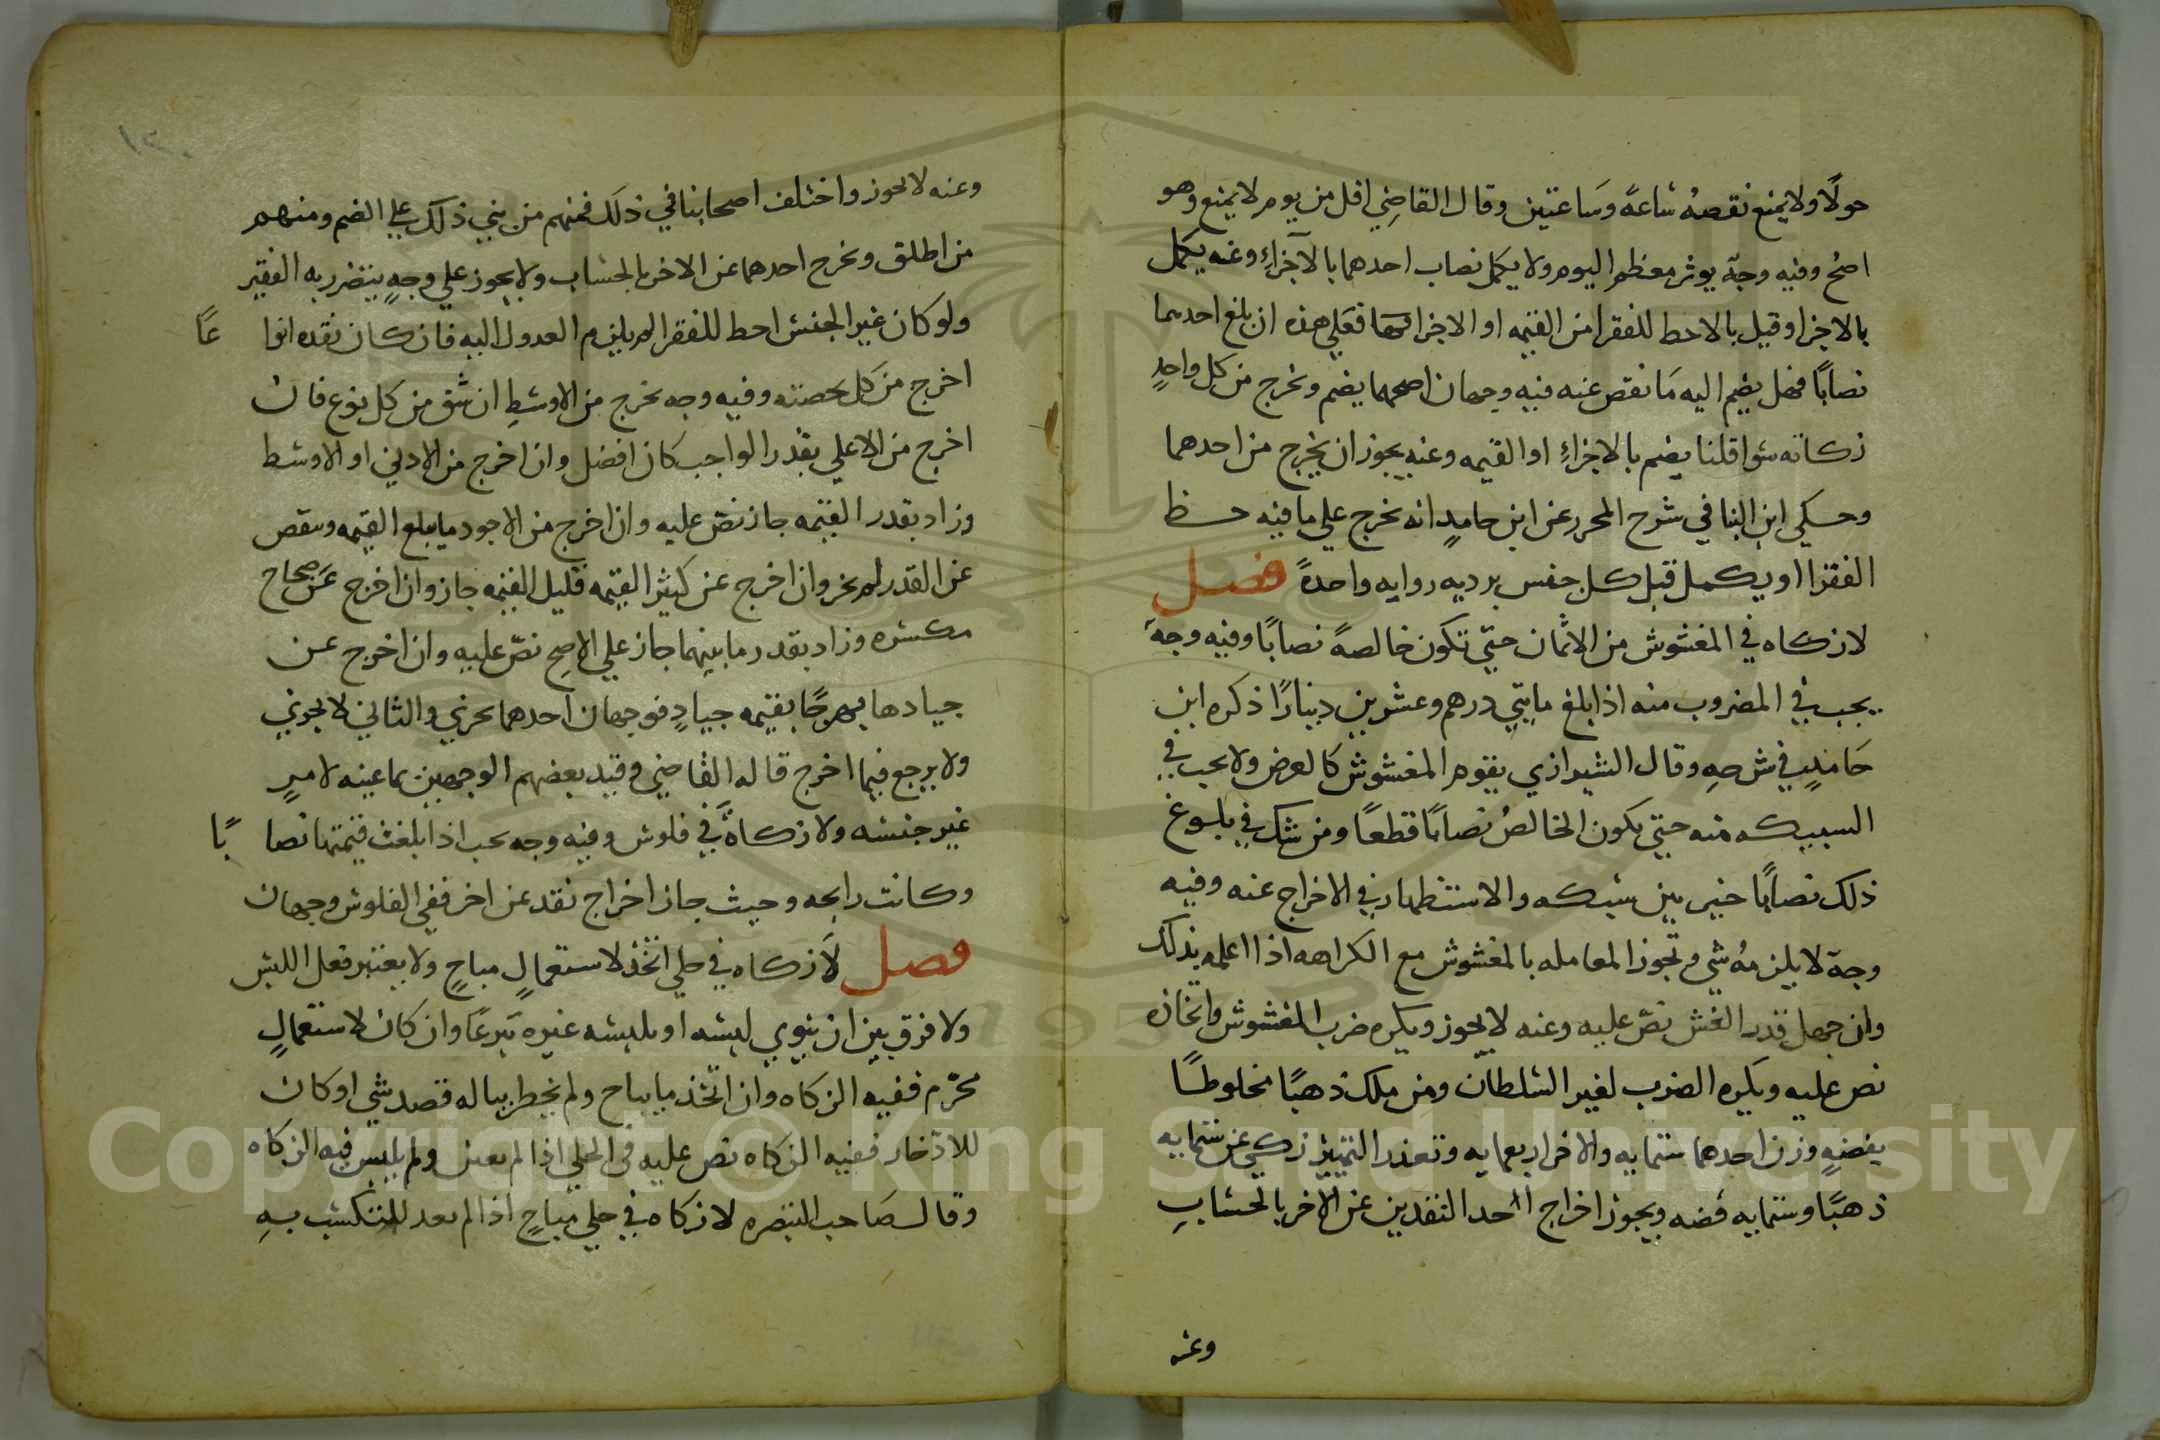 حولًا ولا يمنع نقصهُ ساعةً وسَاعتين وقال القاضِي اقل من يوم لا يمنع وهو
اصحُ وفيه وجهٌ يوثر معظم اليوم ولا يكمل نصاب احدهما بالاخر وعنه يكمل
بالاجزا وقيل بالاحط للفقرا من القيمه او الاجزا فعَلي هذه ان بلغ احدهما
نصابًا فهل يضم اليه مَا نقص عنه فيه وجهان اصحهما يضم ونخرج من كل واحدٍ
زكاته سَوا قلنا يضم بالاجزاءِ او القيمه وعنه يجوز ان يخرج من احدهما
وحكي ابن البنا في شرح المحرر عن ابن حامدٍ انه نخرج علي ما فيه حظ
الفقرا او يكمل قبل كل جنس برديه روايه واحدةً فصل
لا زكاه في المغشوش من الاثمان حتي تكون خالصةً نصابًا وفيه وجهٌ
يجب في المضروب منه اذا بلغ مايتي درهم وعشرين دينارًا ذكره ابن
حَامدٍ في شرحهِ وقال الشيرازي يقوم المغشوش كالعرض ولا يجب في
السبيكه منه حتي يكون الخالصُ نصابًا قطعًا ومن شك في بلوغ
ذلك نصابًا خير بين سبكه والاستظهار في الاخراج عنه وفيه
وجهٌ لا يلزمهُ شي وتجوز المعامله بالمغشوش مع الكراهه اذا اعلمه بذلك
وان جهل قدر الغش نصّ عليه وعنه لا يجوز ويكره ضرب المغشوش واتخاذه
نص عليه ويكره الضرب لغير السلطان ومن ملك ذهبًا مخلوطًا
بفضةٍ وزن احدهما ستمايه والاخر اربعمايه وتعذر التمييز زكي عن ستمايه
ذهبًا وستمايه فضه ويجوز اخراج احد النقدين عن الاخر بالحسابِ
وعنه
وعنه لا يجوز واختلف اصحابنا في ذلك فمنهم من بني ذلك علي الضم ومنهم
من اطلق ونخرج احدهما عن الاخر بالحساب ولا يجوز علي وجهٍ يتضرر به الفقير
ولو كان غير الجنس احط للفقرا لم يلزم العدول اليه فان كان نقده انوا عًا
اخرج من كل بحصته وفيه وجه نخرج من الاوسطِ ان شق من كل نوع فان
اخرج من الاعلي بقدر الواجب كان افضل وان اخرج من الادني او الاوسط
وزاد بقدر القيمه جاز نصّ عليه وان اخرج من الاجود ما يبلغ القيمه وينقص
عن القدر لم يجز وان اخرج عن كثير القيمه قليل القيمه جاز وان اخرج عَن صحاح
مكسره وزاد بقدر ما بينهما جاز علي الاصح نصّ عليه وان اخرج عن
جيادها بهرجًا بقيمه جيادٍ فوجهان احدهما يجزي والثاني لا يجزي
ولا يرجع فيما اخرج قاله القاضي وقيد بعضهم الوجهين بما عينه لا من
غير جنسه ولا زكاةَ في فلوس وفيه وجه يجب اذا بلغت قيمتها نصا بًا
وكانت رايجه وحيث جاز اخراج نقد عن اخر ففي الفلوس وجهان
فصل لَا زكاه في حلي اتخذ لاستعمالٍ مباحٍ ولا يعتبر فعل اللبس
ولا فرق بين ان ينوي لبسه او يلبسه غيره تبرعًا وان كان لاستعمالٍ
محرّم ففيه الزكاه وان اتخذ ما يباح ولم يخطر بباله قصد شي او كان
للادّخار ففيه الزكاه نص عليه في الحلي اذا لم يعر ولم يلبس فيه الزكاه
وقال صَاحب التبصره لا زكاه في حلي مباحٍ اذا لم يعد للتكسب بهِ
Copyright © King Saud University